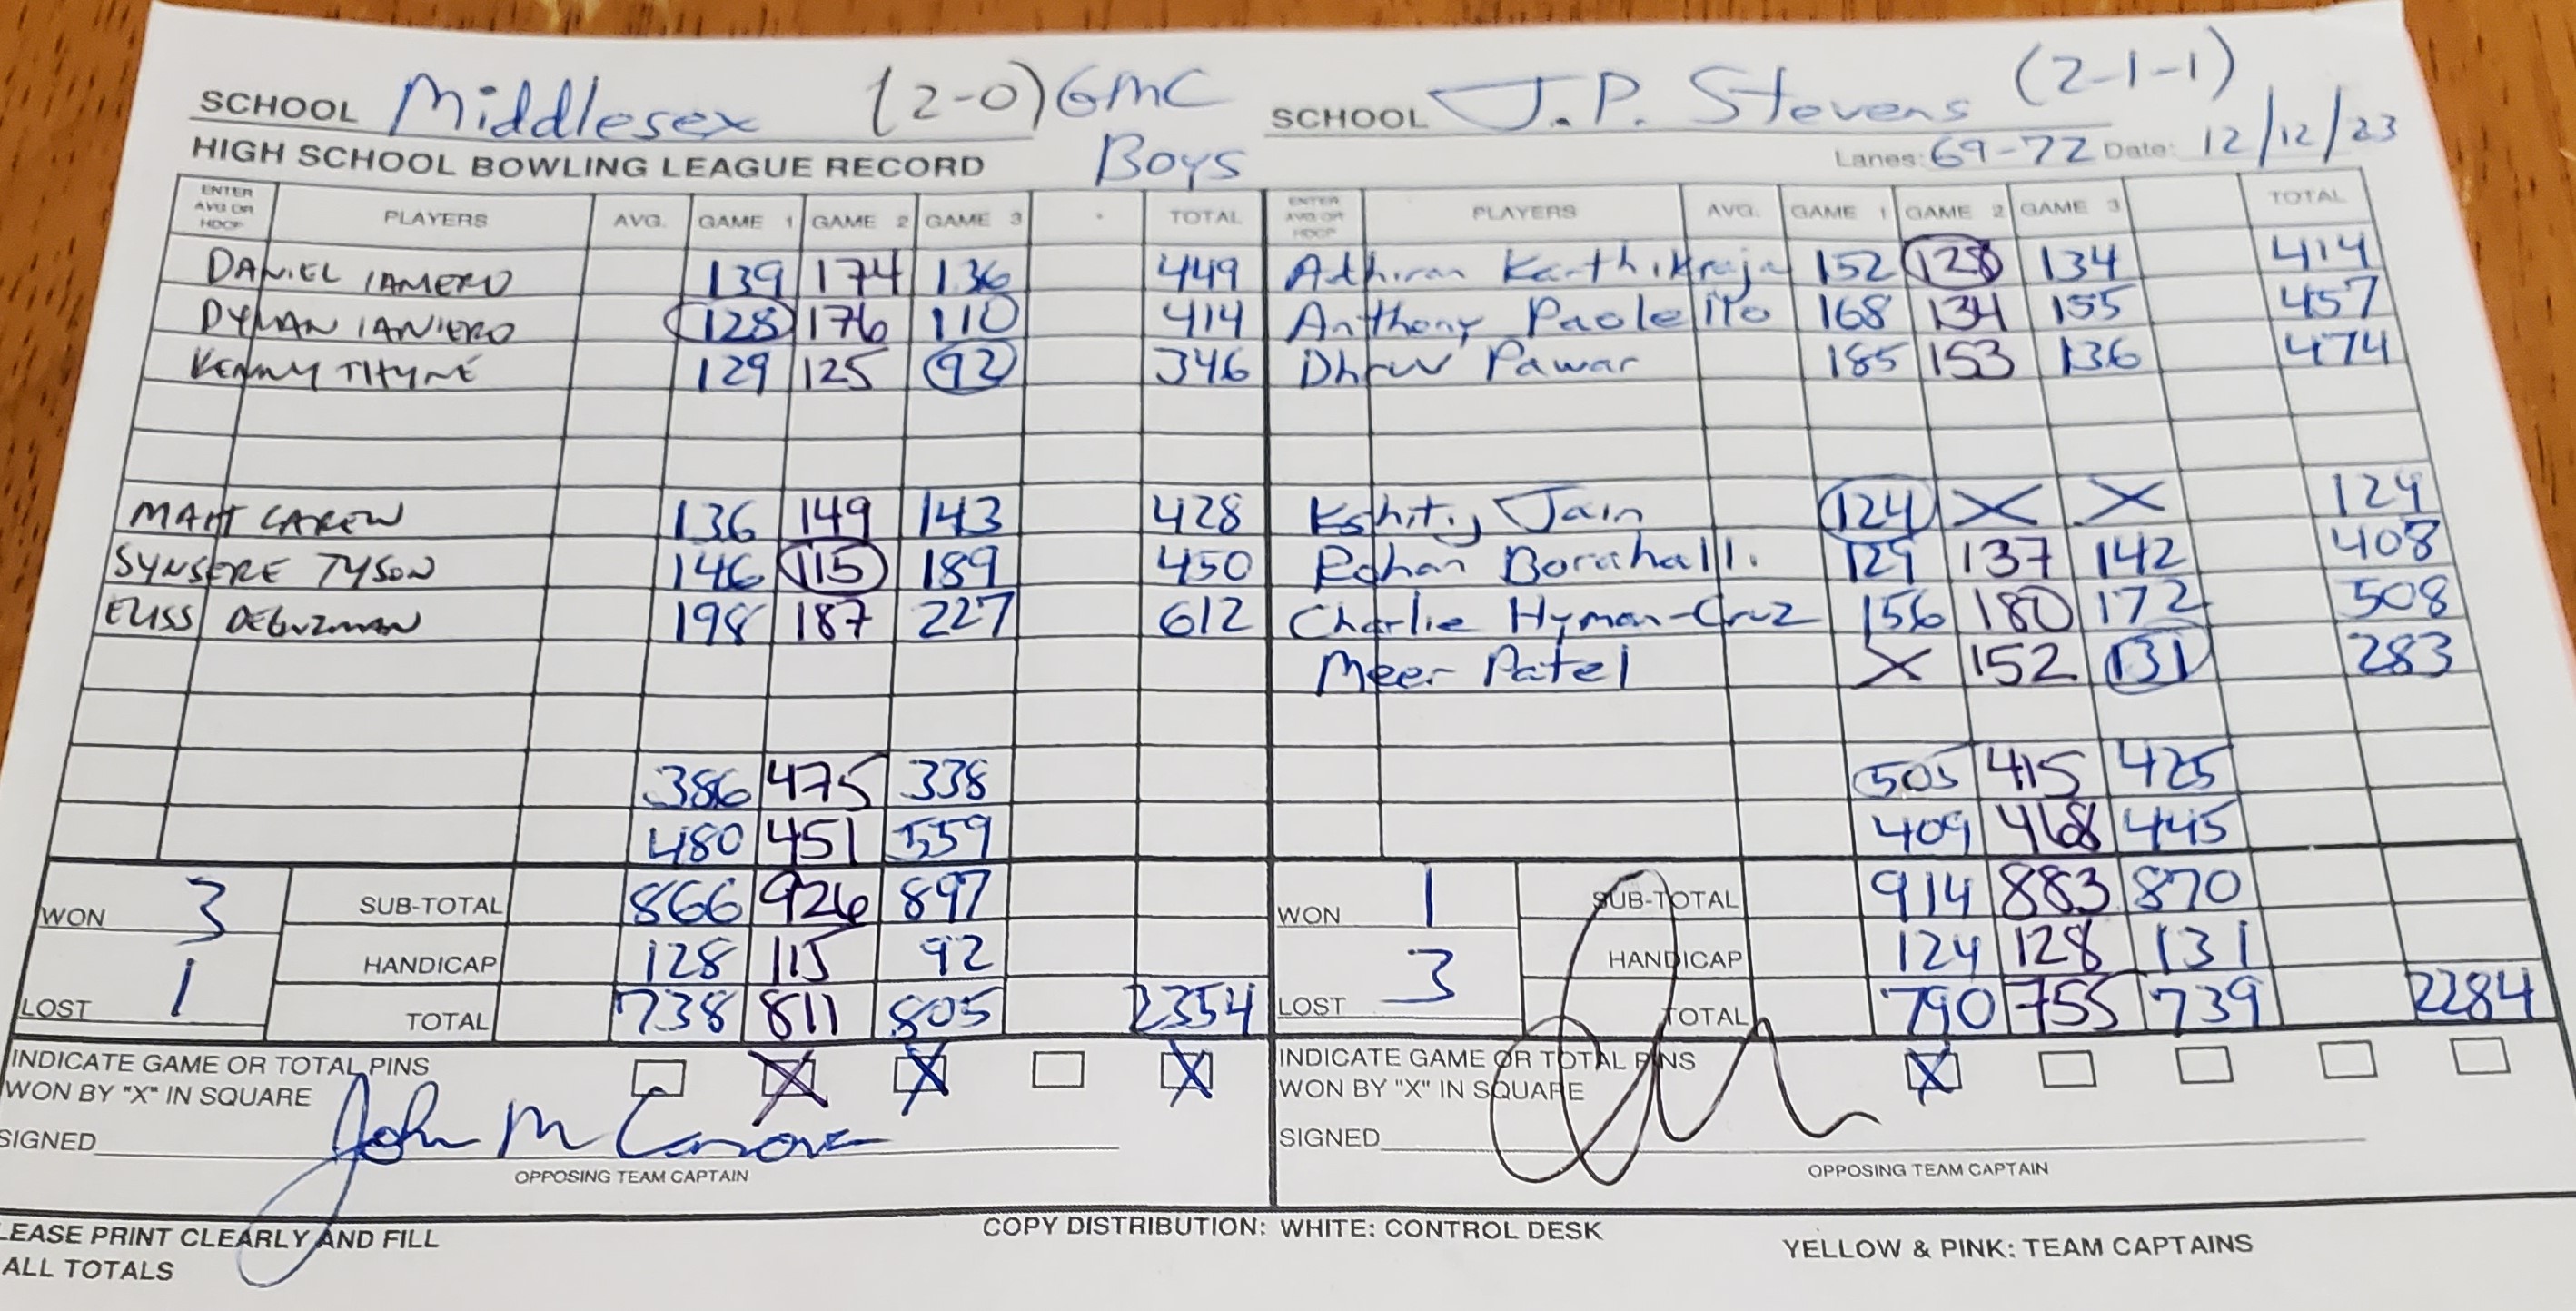 SCHOOL Middlesex (2-0) GMC SCHOOL J.P. Stevens (2-1-1)
HIGH SCHOOL BOWLING LEAGUE RECORD Boys Lanes: 69-72 Date: 12/12/23
ENTER AVG OR HDCP PLAYERS AVG. GAME 1 GAME 2 GAME 3 TOTAL ENTER AVG OR HDCP PLAYERS AVG. GAME 1 GAME 2 GAME 3 TOTAL
DANIEL IANIERO 139 174 136 449 Adhiran Karthikraja 152 128 134 414
DYLAN IANIERO 128 176 110 414 Anthony Paolello 168 134 155 457
KENNY THYNE 129 125 92 346 Dhruv Pawar 185 153 136 474
MATT CAREW 136 149 143 428 Kshitij Jain 124 X X 124
SYNSERE TYSON 146 115 189 450 Rohan 129 137 142 408
ELISS DEGUZMAN 198 187 227 612 Charlie Hyman-Cruz 156 180 172 508
Meer Patel X 152 131 283
386 475 338 505 415 425
480 451 559 409 468 445
WON 3 SUB-TOTAL 866 926 897 WON 1 SUB-TOTAL 914 883 870
HANDICAP 128 115 92 HANDICAP 124 128 131
LOST 1 TOTAL 738 811 805 2354 LOST 3 TOTAL 790 755 739 2284
INDICATE GAME OR TOTAL PINS X X X INDICATE GAME OR TOTAL PINS X
WON BY "X" IN SQUARE WON BY "X" IN SQUARE
SIGNED John M SIGNED
OPPOSING TEAM CAPTAIN OPPOSING TEAM CAPTAIN
LEASE PRINT CLEARLY AND FILL COPY DISTRIBUTION: WHITE: CONTROL DESK YELLOW & PINK: TEAM CAPTAINS
ALL TOTALS